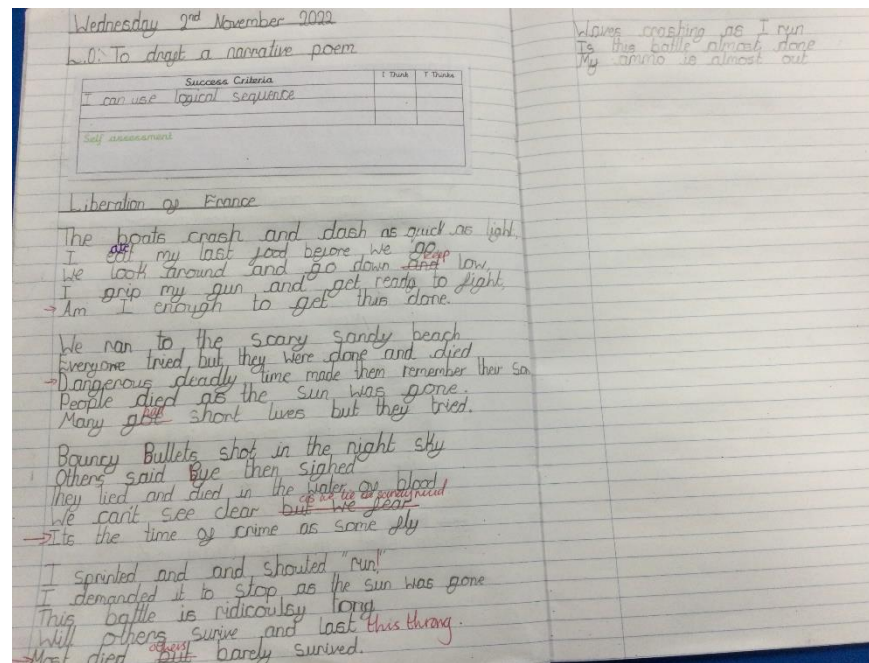 Wednesday 2nd November 2022
L.O: To draft a narrative poem
Success Criteria I Think T Thinks
I can use logical sequence
Self assessment
Liberation of France
The boats crash and dash as quick as light,
I ate my last food before we go
We look around and go down and keep low,
I grip my gun and get ready to fight,
→Am I enough to get this done.
We ran to the scary sandy beach
Everyone tried but they were done and died
→Dangerous deadly time made them remember their so
People died as the sun was gone.
Many got had short lives but they tried.
Bouncy Bullets shot in the night sky
Others said Bye then sighed
They lied and died in the water of blood
We can't see clear but we fear as we lie in sandy mud
→Its the time of crime as some fly
I sprinted and and shouted "run!"
I demanded it to stop as the sun was gone
This battle is ridicoulsy long
Will others surive and last this throng.
→Most died but others barely surived.
Waves crashing as I run
Is this battle almost done
My ammo is almost out